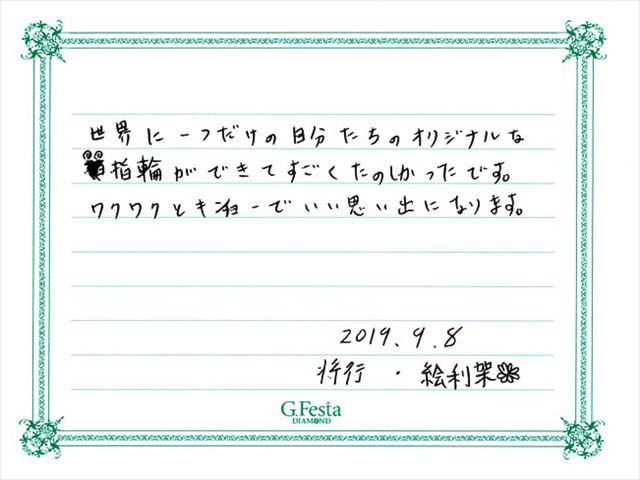 世界に一つだけの自分たちのオリジナルな
指輪ができてすごくたのしかったです。
ワクワクとキンチョーでいい思い出になります。
2019.9.8
将行・絵利架
G.Festa
DIAMOND